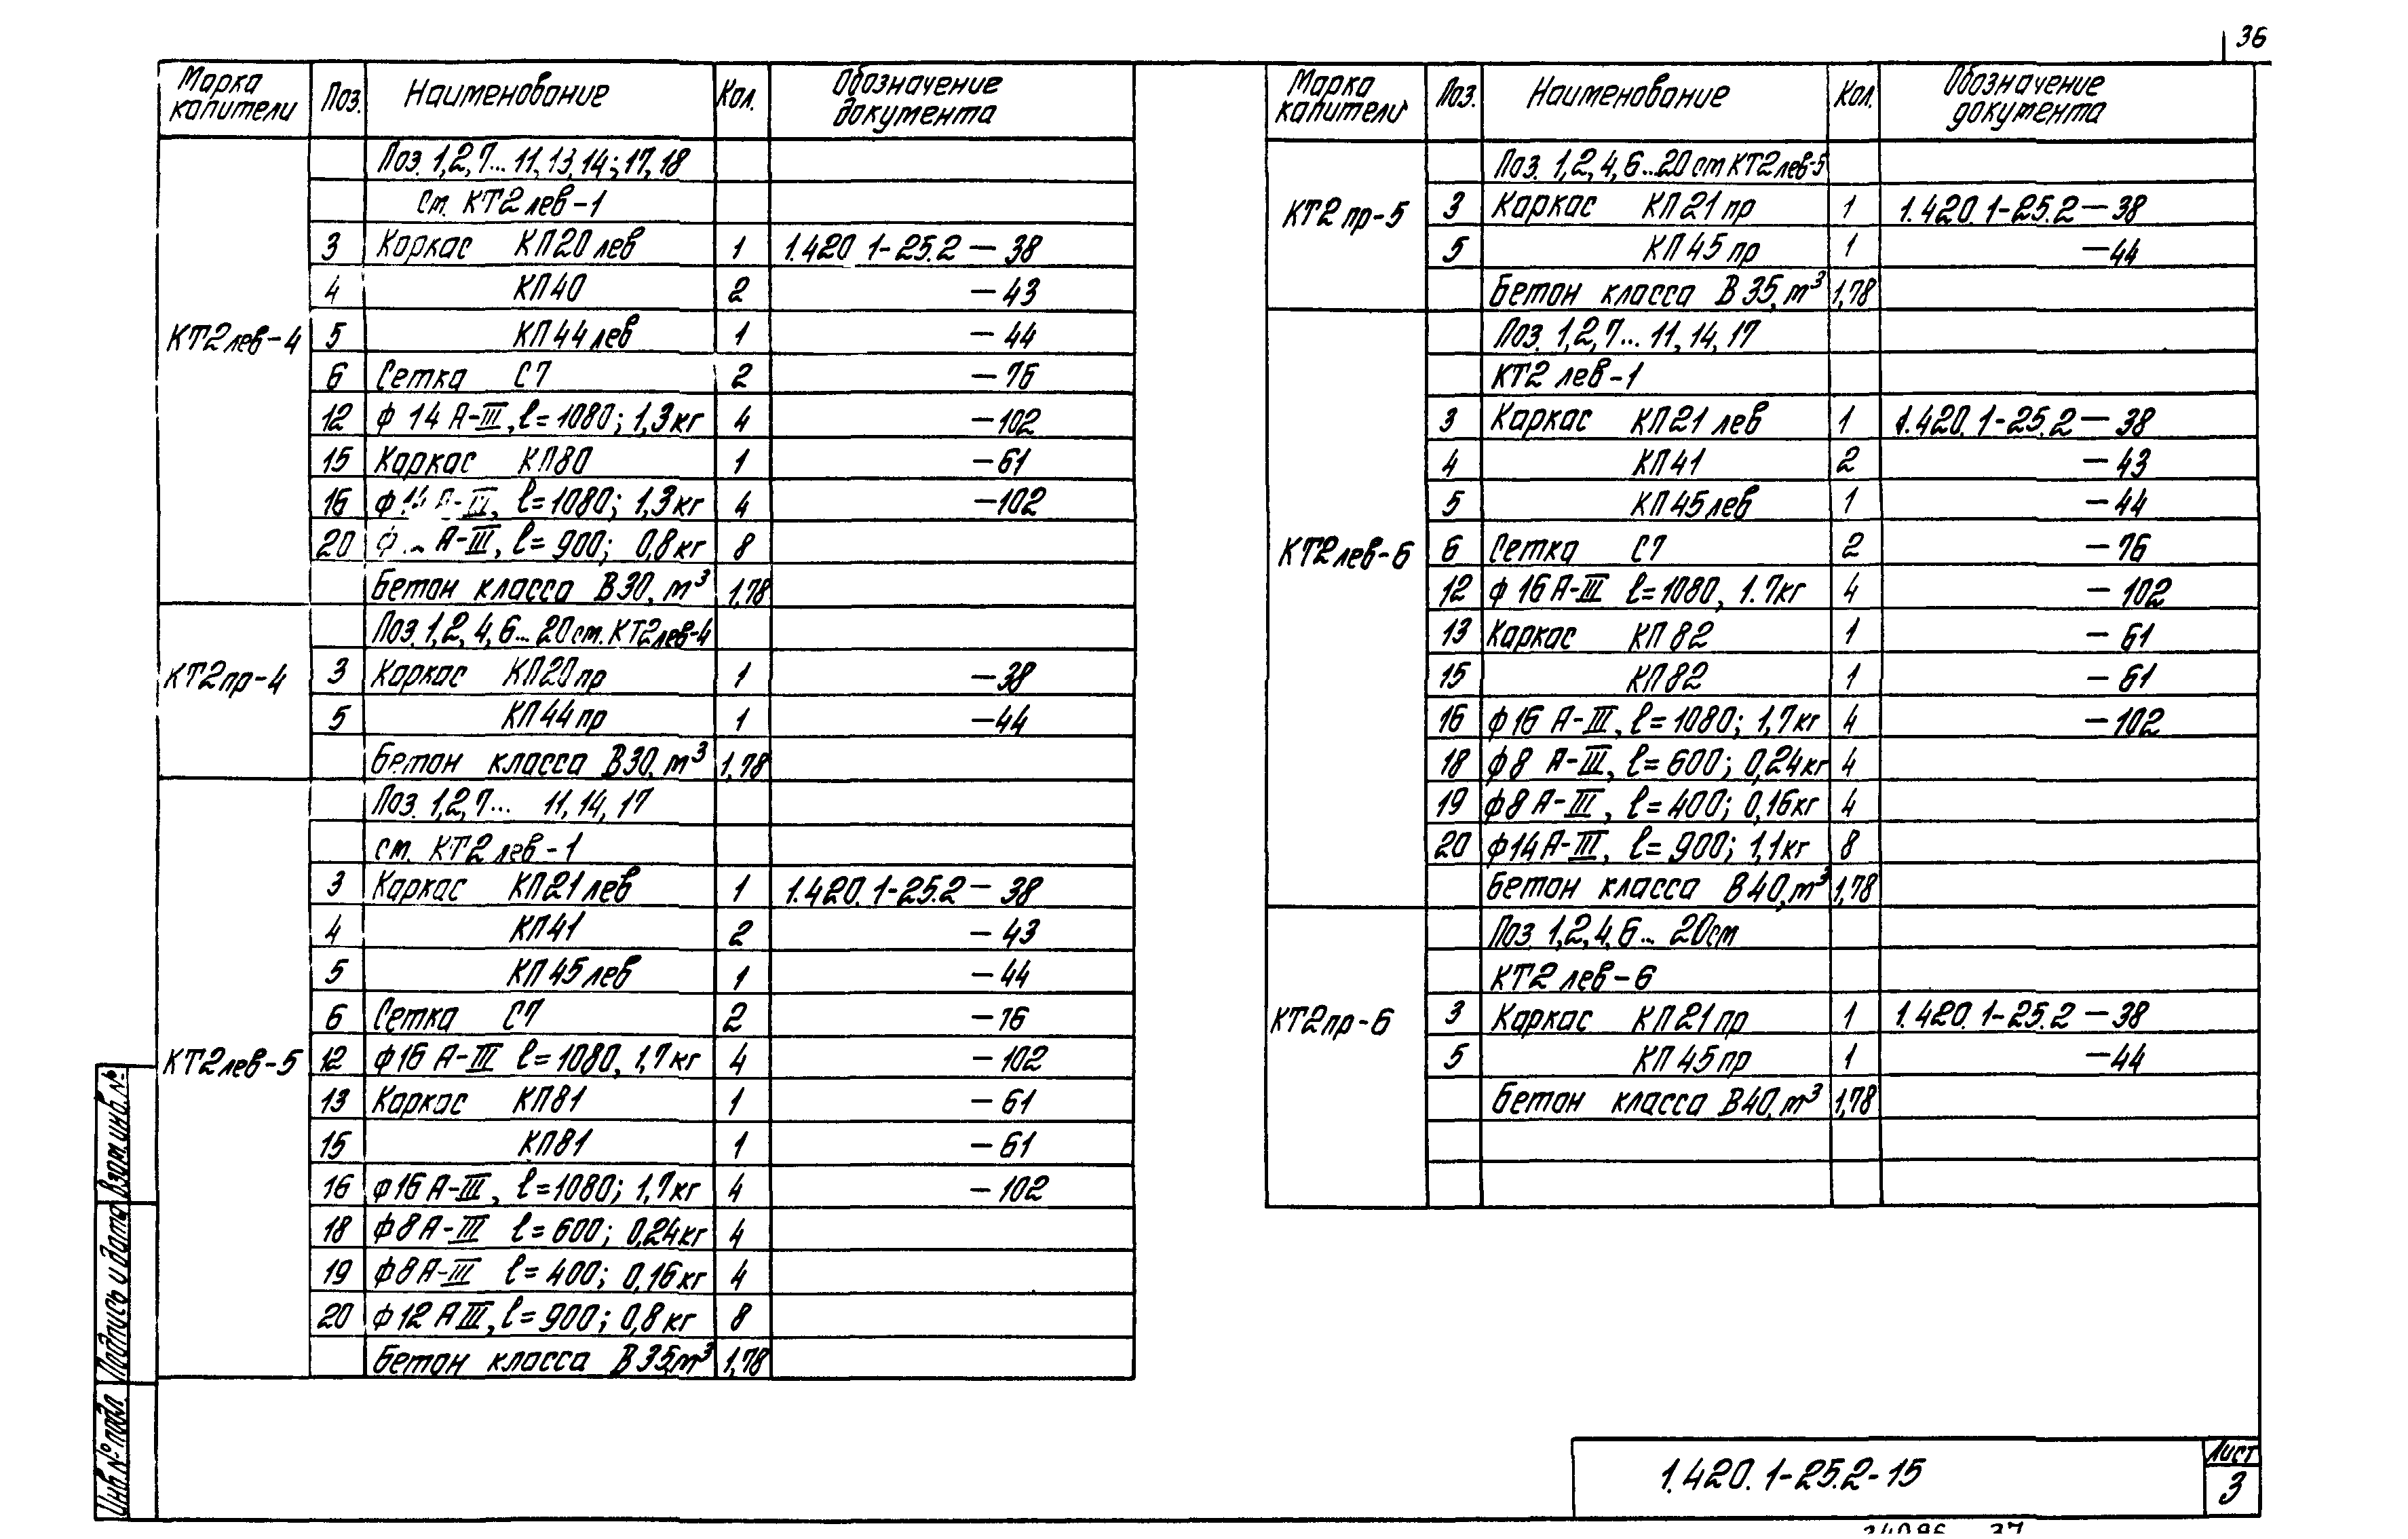 36
Марка капители Поз. Наименование Кол. Обозначение документа
Поз. 1,2,7... 11,13,14; 17,18
см. КТ2лев-1
3 Каркас КП20лев 1 1.420.1-25.2-38
4 КП40 2 -43
КТ2лев-4 5 КП44лев 1 -44
6 Сетка С7 2 -76
12 ф 14 А-III, ℓ=1080; 1,3кг 4 -102
15 Каркас КП80 1 -61
16 ф 14 А-III, ℓ=1080; 1,3кг 4 -102
20 ф А-III, ℓ=900; 0,8кг 8
Бетон класса В30, м³ 1,78
Поз. 1,2,4,6...20см. КТ2лев-4
КТ2пр-4 3 Каркас КП20пр 1 -38
5 КП44пр 1 -44
Бетон класса В30, м³ 1,78
Поз. 1,2,7... 11,14,17
см. КТ2лев-1
3 Каркас КП21лев 1 1.420.1-25.2-38
4 КП41 2 -43
5 КП45лев 1 -44
6 Сетка С7 2 -76
КТ2лев-5 12 ф16 А-III ℓ=1080, 1,7кг 4 -102
13 Каркас КП81 1 -61
15 КП81 1 -61
16 ф16А-III, ℓ=1080; 1,7кг 4 -102
18 ф8А-III ℓ=600; 0,24кг 4
19 ф8А-III ℓ=400; 0,16кг 4
20 ф12 АIII, ℓ=900; 0,8кг 8
Бетон класса В35,м³ 1,78
Марка капители Поз. Наименование Кол. Обозначение документа
Поз. 1,2,4,6...20см КТ2лев-5
КТ2пр-5 3 Каркас КП21пр 1 1.420.1-25.2-38
5 КП45пр 1 -44
Бетон класса В35,м³ 1,78
Поз. 1,2,7... 11,14,17
КТ2лев-1
3 Каркас КП21лев 1 1.420.1-25.2-38
4 КП41 2 -43
5 КП45лев 1 -44
КТ2лев-6 6 Сетка С7 2 -76
12 ф16А-III ℓ=1080, 1.7кг 4 -102
13 Каркас КП82 1 -61
15 КП82 1 -61
16 ф16 А-III, ℓ=1080; 1,7кг 4 -102
18 ф8 А-III, ℓ=600; 0,24кг 4
19 ф8А-III, ℓ=400; 0,16кг 4
20 ф14А-III, ℓ=900; 1,1кг 8
Бетон класса В40,м³ 1,78
Поз. 1,2,4,6... 20см
КТ2лев-6
КТ2пр-6 3 Каркас КП21пр 1 1.420.1-25.2-38
5 КП45пр 1 -44
Бетон класса В40,м³ 1,78
Взам.инв.№
Подпись и дата
Инв.№подл.
1.420.1-25.2-15
Лист
3
24086 37